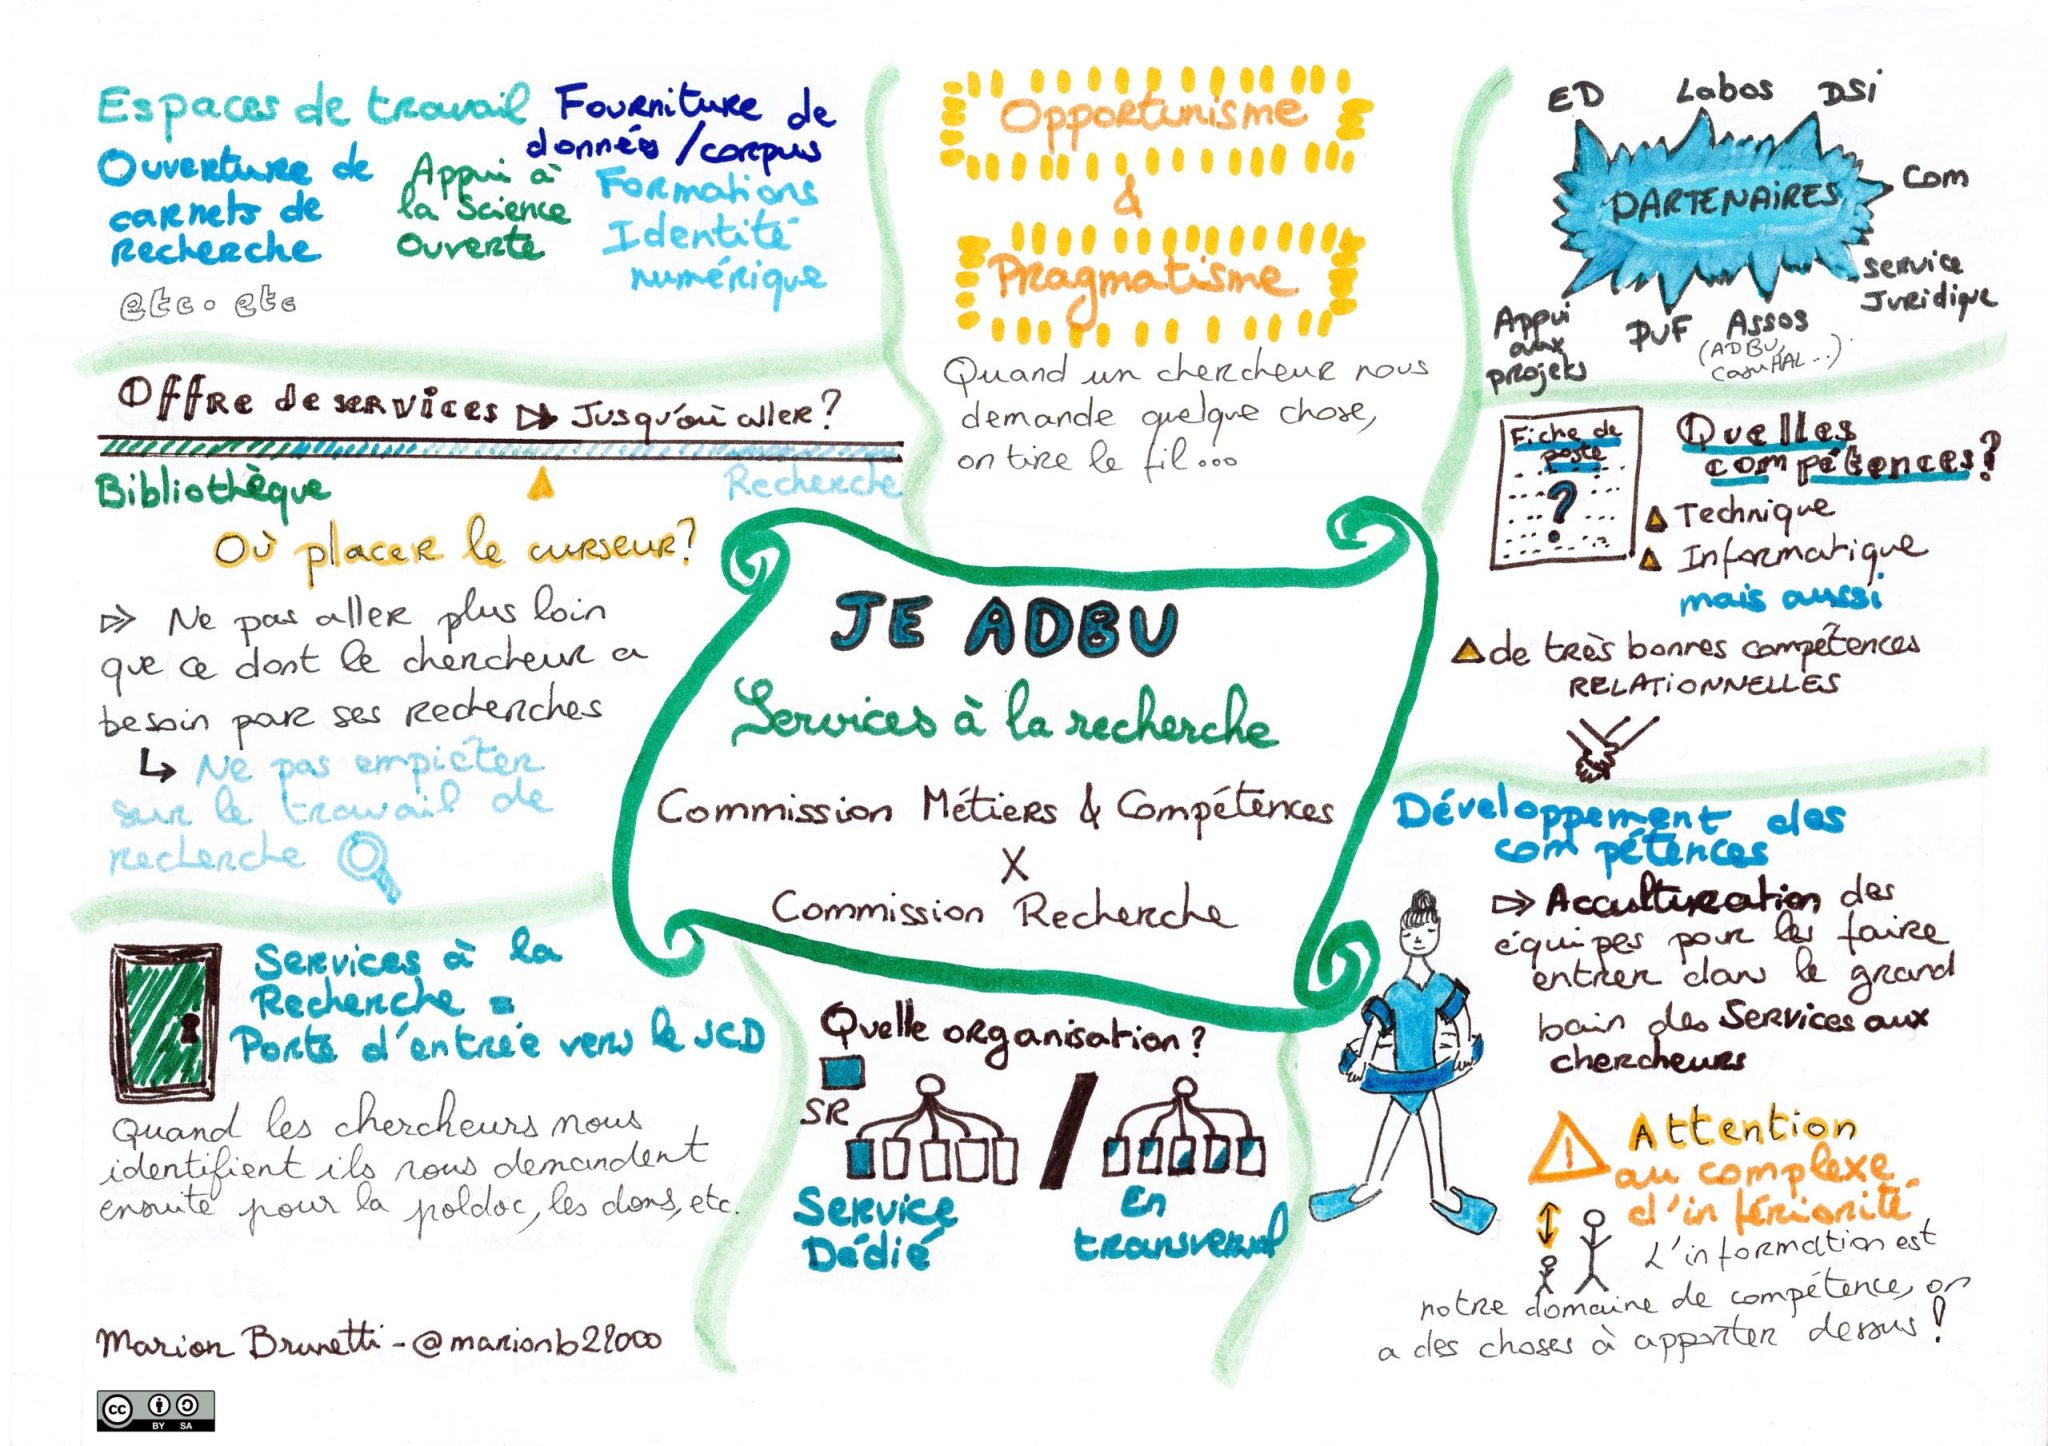 Espaces de travail
Fourniture de
données / corpus
Ouverture de
carnets de
recherche
Appui à
la Science
Ouverte
Formations
Identité
numérique
etc. etc
Offre de services ▷ Jusqu'où aller?
Bibliothèque
Recherche
Où placer le curseur?
Ne pas aller plus loin
que ce dont le chercheur a
besoin pour ses recherches
Ne pas empiéter
sur le travail de
recherche
Services à la
Recherche =
Porte d'entrée vers le SCD
Quand les chercheurs nous
identifient ils nous demandent
ensuite pour la poldoc, les dons, etc.
Marion Brunetti - @marionb22000
cc BY SA
Opportunisme
&
Pragmatisme
Quand un chercheur nous
demande quelque chose,
on tire le fil...
JE ADBU
Services à la recherche
Commission Métiers & Compétences
X
Commission Recherche
Quelle organisation?
SR
/
Service
Dédié
En
transversal
ED
Labos
DSI
PARTENAIRES
Com
Service
Juridique
Appui
aux
projets
PUF
Assos
(ADBU,
CasuHAL...)
Fiche de
poste
?
Quelles
compétences?
Technique
Informatique
mais aussi
de très bonnes compétences
RELATIONNELLES
Développement des
compétences
Acculturation des
équipes pour les faire
entrer dans le grand
bain des Services aux
chercheurs
Attention
au complexe
d'infériorité
L'information est
notre domaine de compétence, on
a des choses à apporter dessus!